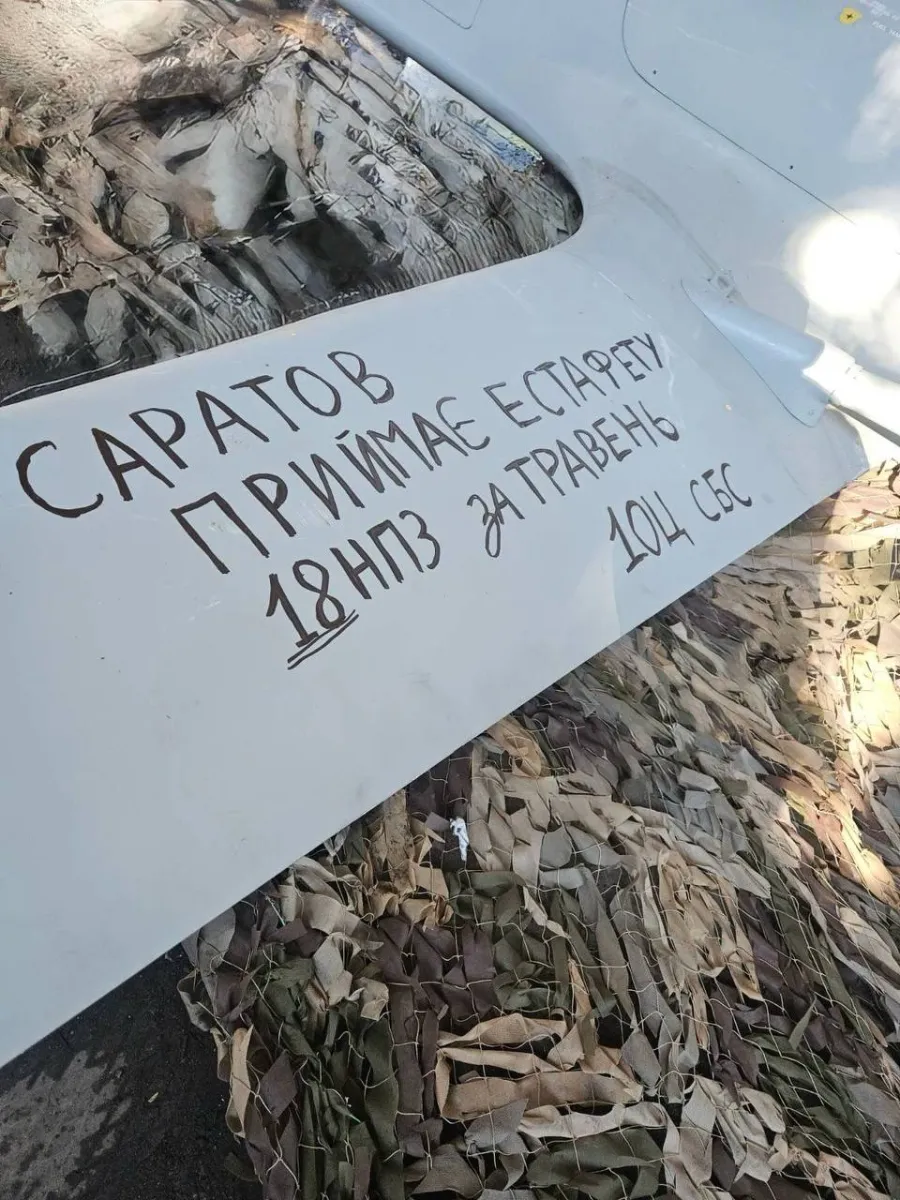 САРАТОВ
ПРИЙМАЄ ЕСТАФЕТУ
18 НПЗ ЗА ТРАВЕНЬ
10Ц СБС